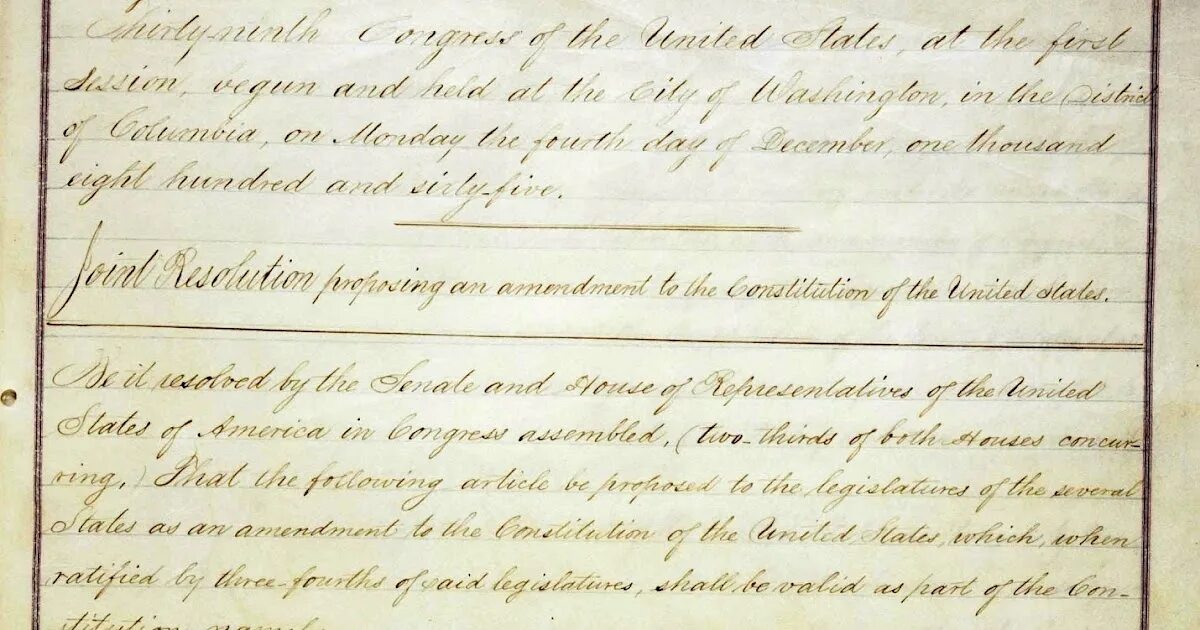 Thirty-ninth Congress of the United States, at the first
Session, begun and held at the City of Washington, in the District
of Columbia, on Monday the fourth day of December, one thousand
eight hundred and sixty-five.
Joint Resolution proposing an amendment to the Constitution of the United States.
Be it resolved by the Senate and House of Representatives of the United
States of America in Congress assembled, (two-thirds of both Houses concur-
ring,) That the following article be proposed to the legislatures of the several
States as an amendment to the Constitution of the United States, which, when
ratified by three-fourths of said legislatures, shall be valid as part of the Con-
stitution, namely